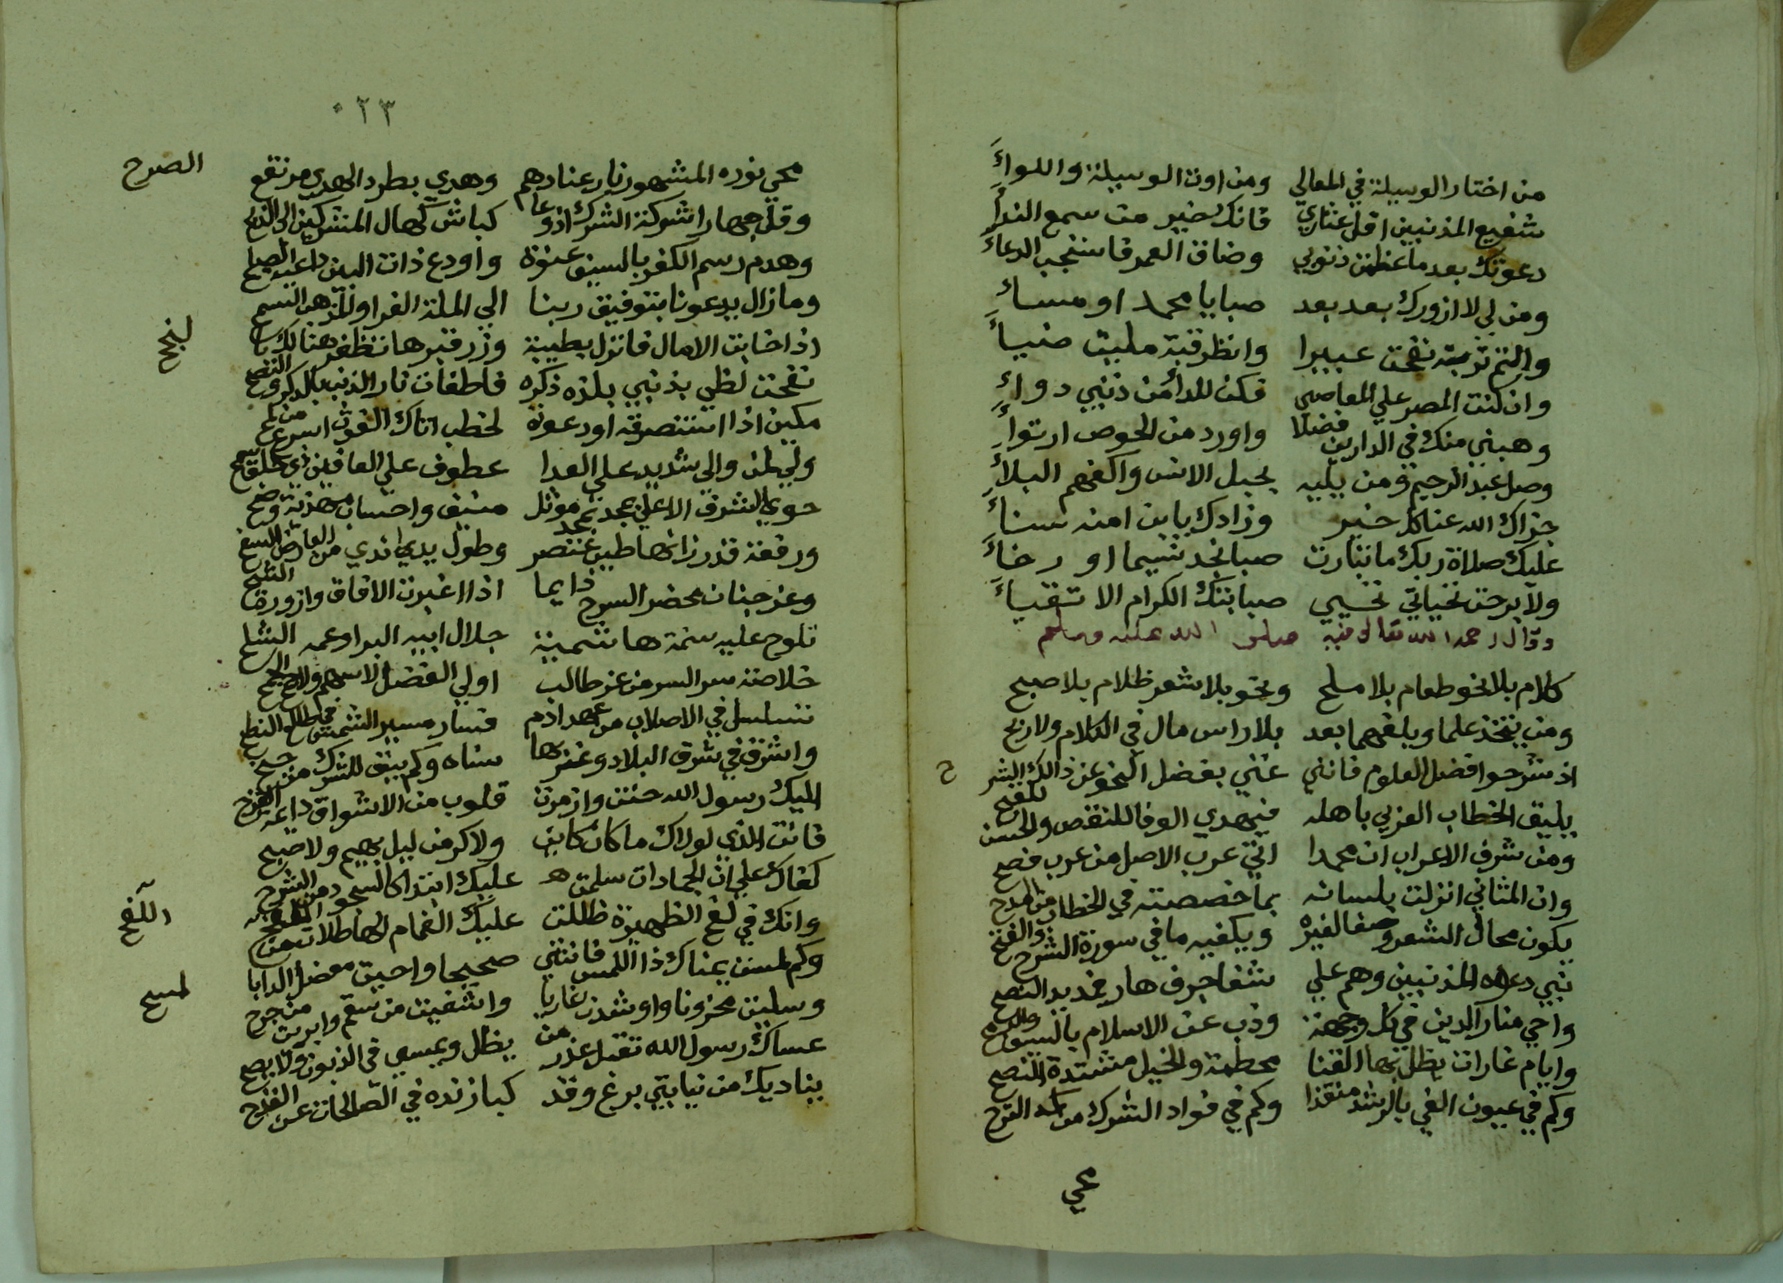 من اختار الوسيلة في المعالي ومن اوتي الوسيلة واللواءَ
شفيع المذنبين اقل عثاري فانك خير من سمع النداءَ
دعوتك بعد ما عظمت ذنوبي وضاق العمر فاستجب الدعاءَ
ومن لي لا ازورك بعد بعد صبا يا محمد او مساءَ
والثم تربة نفحت عبيرا وانظر قبة مليت ضياءَ
وان كنت المصر علي المعاصي فكن للداء من ذنبي دواءِ
وهبني منك في الدارين فضلا واورد من الحوض ارتواءَ
وصل عبد الرحيم ومن يليه بحبل الانس واكفهم البلاءَ
جزاك الله عنا كل خير وزادك يا ابن امنه سناءَ
عليك صلاة ربك ما تبارت صبا نجد نسيما او رخاءَ
ولا برحت تحياتي تحيي صحابتك الكرام الاتقياءَ
وقال رحمه الله تعالى فيه صلى الله عليه وسلم
كلام بلا نحو طعام بلا ملح ونحو بلا شعر ظلام بلا صبح
ومن يتخذ علما ويلغهما بعد بلا راس مال في الكلام ولا ربح
اذ شرحوا فضل العلوم فانني غني بفضل النحو عن ذالك الشر ح
يليق الخطاب العربي باهله فيهدي الوفا للنقص والحسن للقبح
ومن شرف الاعراب ان محمدا اتي عرب الاصل من عرب فصح
وان المثاني انزلت بلسانه بما خصصته في الخطاب من المدح
يكون محال الشعر وصفا لغيره ويكفيه ما في سورة الشرح والفتح
نبي دعاه المذنبين وهم علي شفا جرف هار فمد يد النصح
واحي منار الدين في كل وجهة وذب عن الاسلام بالسيف والرمح
وايام غارات يظل بها القنا محطمة والخيل مشتدة النضح
وكم في عيون الغي بالرشد من قذا وكم في فواد الشرك من ترح
محي
٠٢٣
محي نوره المشهور نار عنادهم وهدي بطرد الهدى مرتفع الصرح
وقل جهارا شوكة الشرك اذ دعاهم كباش كهال المشركين الى الذبح
وهدم رسم الكفر بالسيف عنوة واودع ذات البين داعية الصلح
وما زال يدعونا بتوفيق ربنا الي الملة الغرا والمذهب السمح
اذا خابت الامال فانزل بطيبة وزر قبرها تظفر هنالك بالنجح
نفحت لظي بذنبي بلذه ذكره فاطفات نار الذنب بالذكر والنضح
مكين اذا استنصرته او دعوته لخطب اتاك الغوث اسرع من لمح
ولي لمن والي شديد علي العدا عطوف علي العافين ذي خلق سمح
حوي الشرف الاعلي بمجد موثل منيف واحسان
ورفعة قدر زانها طيب عنصر وطول يد اندي من العارض السح
وعز جنان مخضر السوح دايما اذا اغبرت الافاق وازورة
تلوح عليه سمة هاشمية جلال ابيه البر او عمه
خلاصة سر السر من عز طالب اولي الفضل
تسلسل في الاصلاب من عهد ادم فسار مسير الشمس
واشرق في شرق البلاد وغربها سناه وكم
اليك رسول الله حنت وازمرت قلوب من الاشواق دامية القرح
فانت الذي لولاك ما كان كاين ولا كر من ليل بهيم ولا صبح
كفاك علي ان الجمادات سلمت عليك ابتدا كالسحو
وانك في لفح الظهيرة ظللت عليك الغمام الهاطلات من اللفح
وكم لمست يمناك ذا اللمس فانثني صحيحا واحيت معضل الدا با لمسح
وسليت محزونا واوشدت غاويا واشفيت من سقم وابريت من جرح
عساك رسول الله تقبل عذر من يظل ويمسي في الذنوب ولا يصح
يناديك من نيابتي برع وقد كبا زنده في الصالحات عن القدح
الصرح
لنجح
اللفح
لمسح